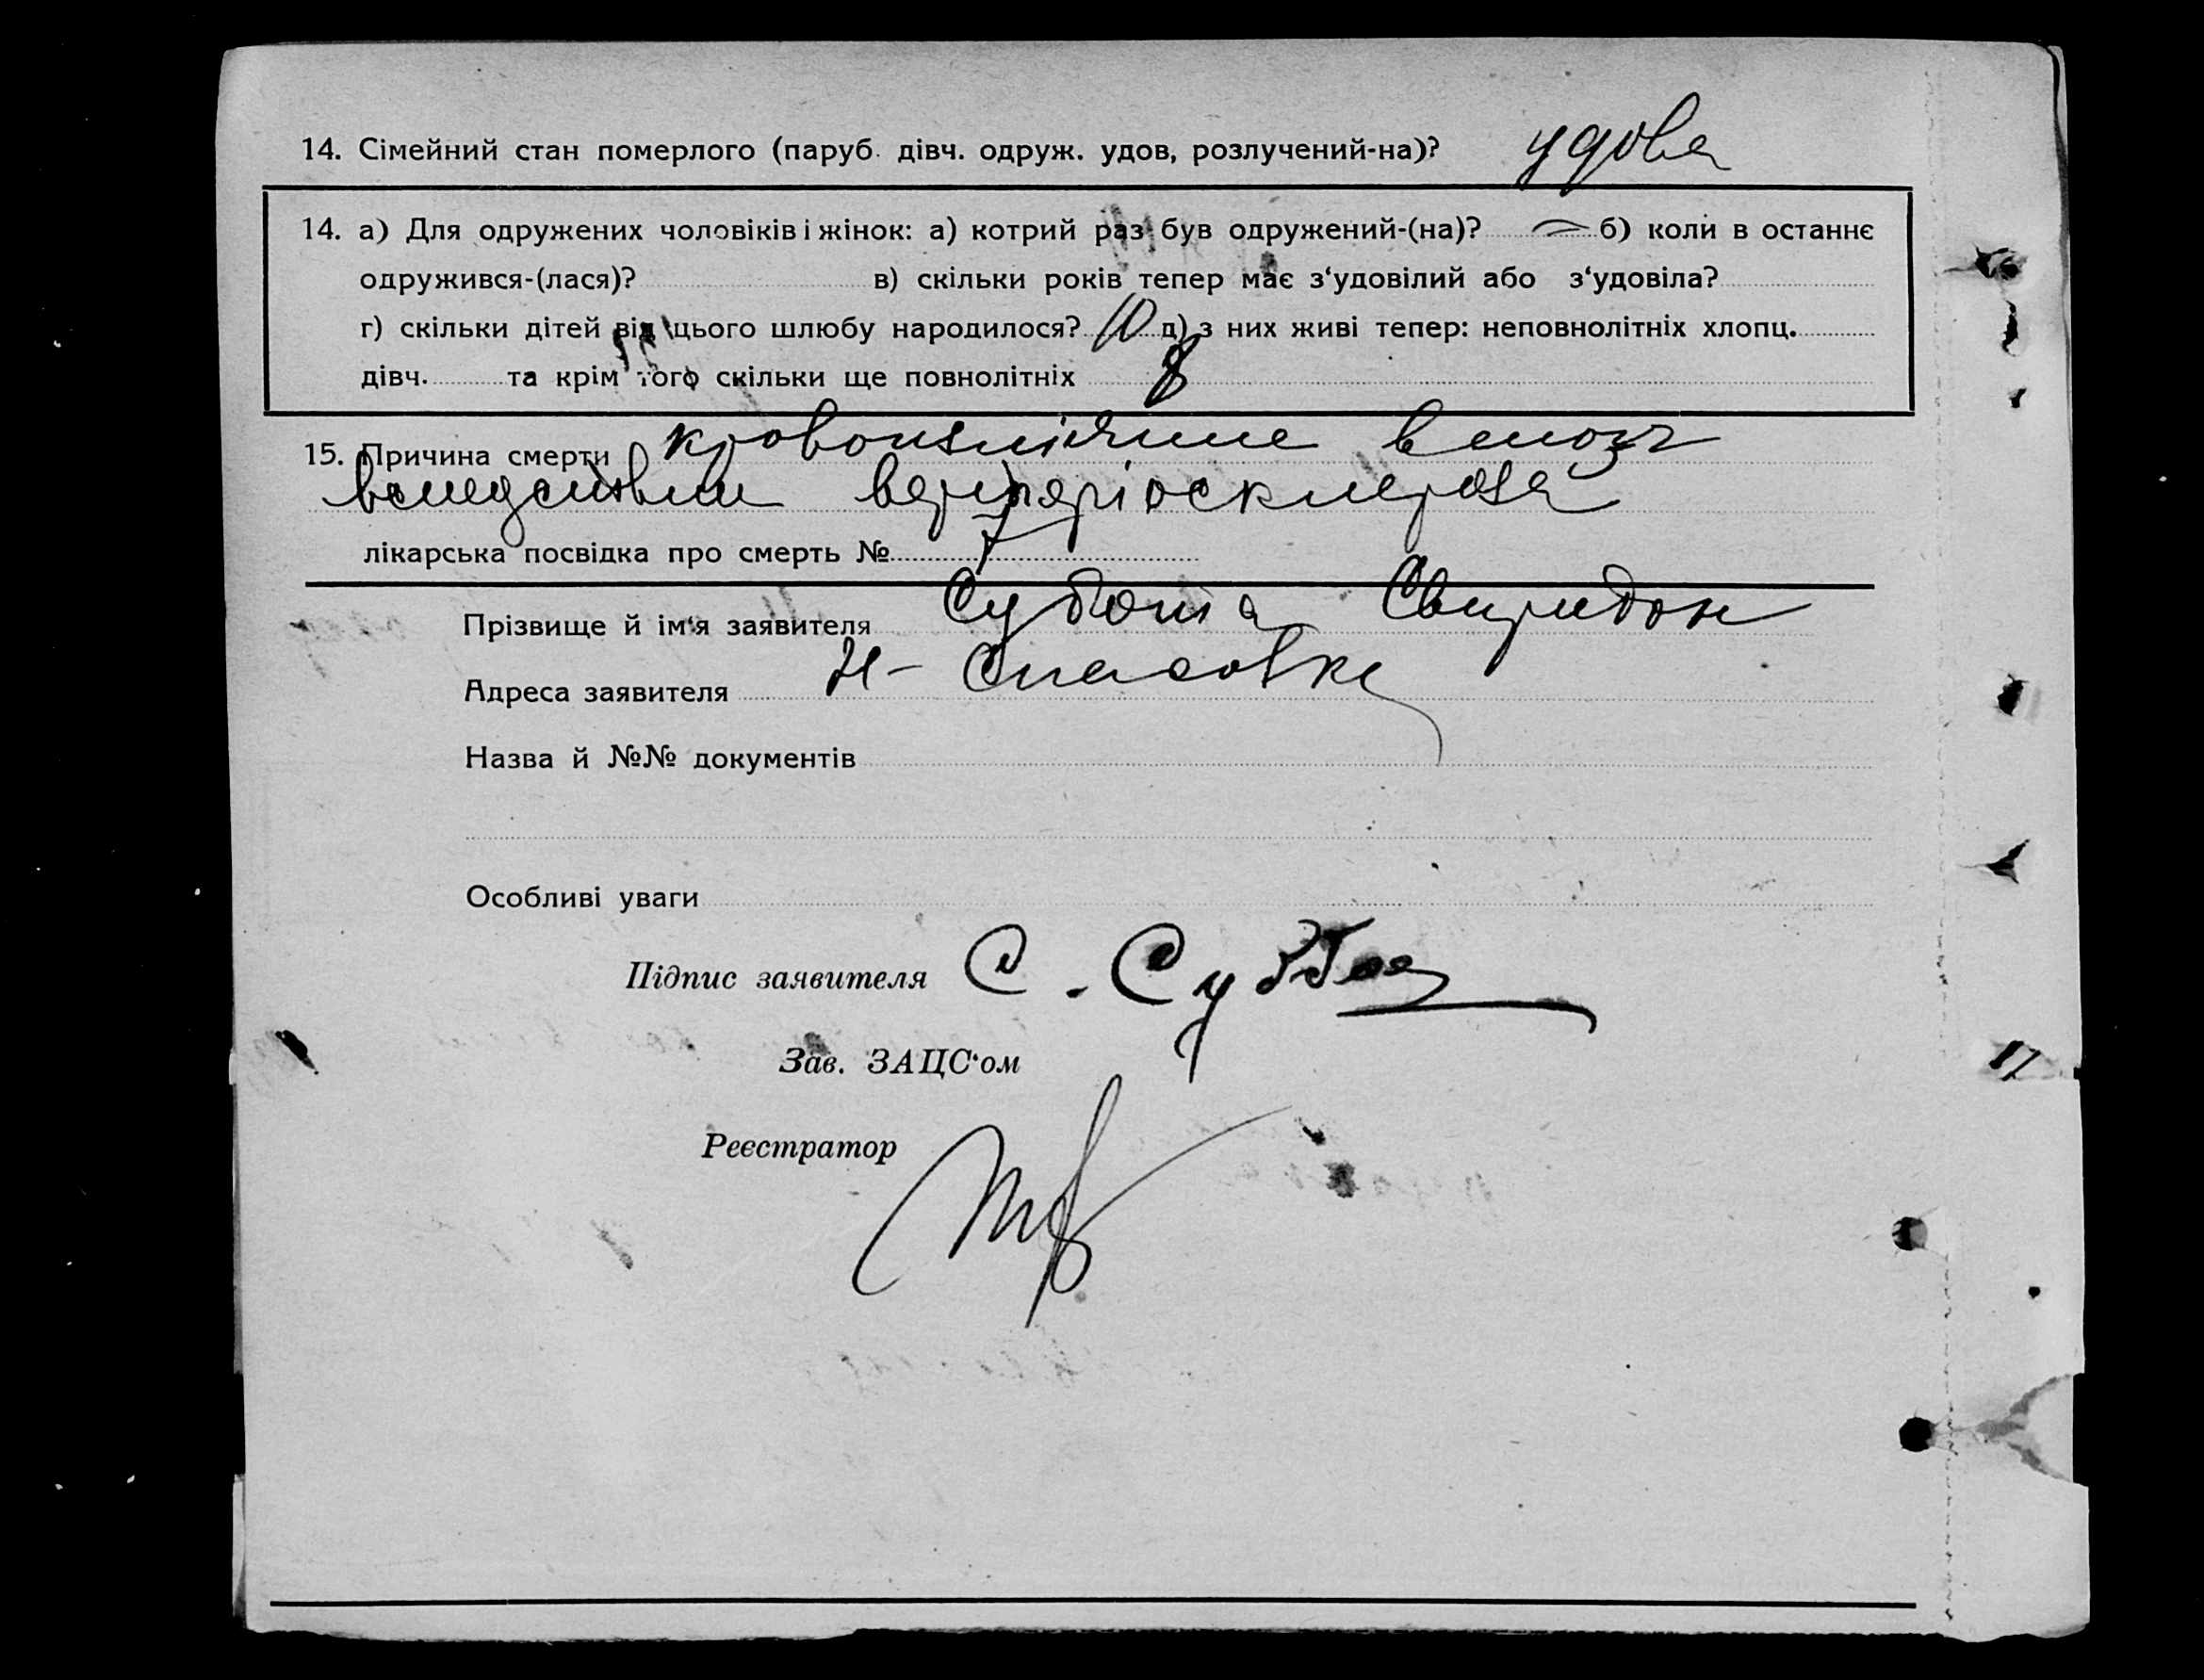 14. Сімейний стан померлого (паруб. дівч. одруж. удов, розлучений-на)? удова
14. а) Для одружених чоловіків і жінок: а) котрий раз був одружений-(на)? — б) коли в останнє
одружився-(лася)? в) скільки років тепер має з‘удовілий або з‘удовіла?
г) скільки дітей від цього шлюбу народилося? 10 д) з них живі тепер: неповнолітніх хлопц.
дівч. та крім того скільки ще повнолітніх 8
15. Причина смерти кровоизліяние в мозг
вследствии
лікарська посвідка про смерть № 7
Прізвище й ім‘я заявителя Субота Свиридон
Адреса заявителя Н-Спасовка
Назва й №№ документів
Особливі уваги
Підпис заявителя С. Субота
Зав. ЗАЦС‘ом
Реєстратор